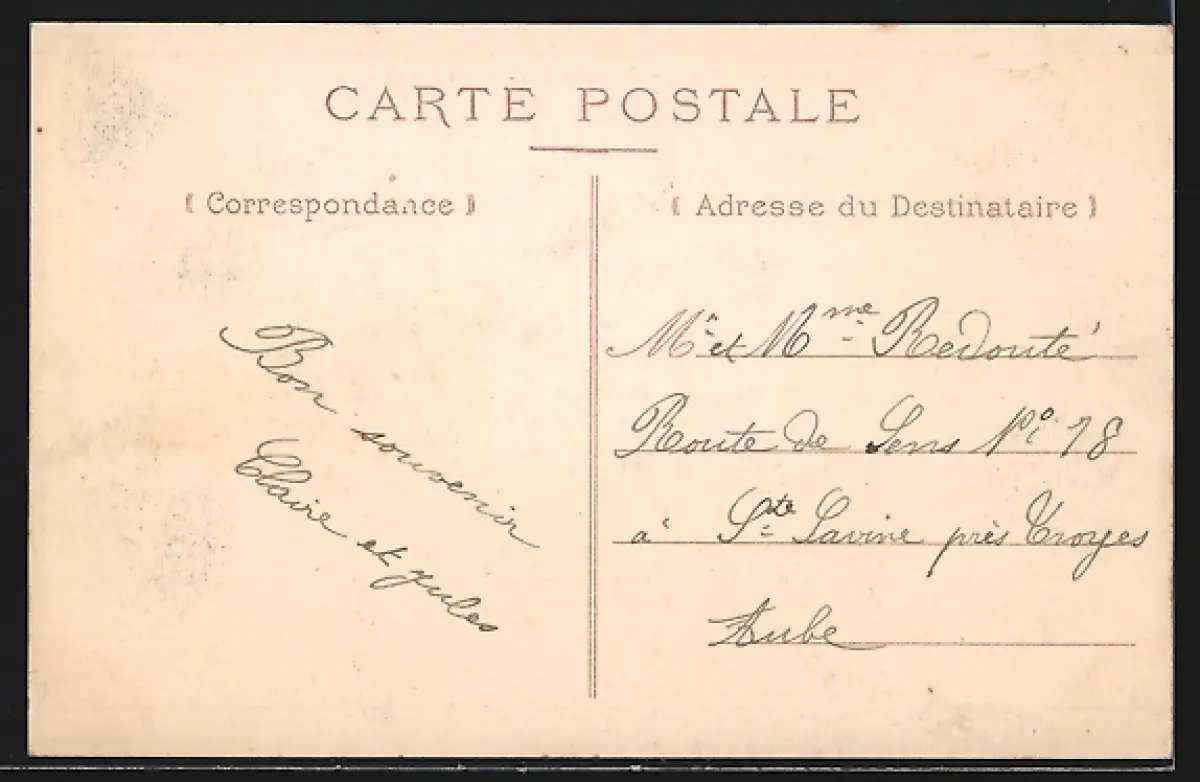 CARTE POSTALE
( Correspondance )
Bon souvenir
Claire et jules
( Adresse du Destinataire )
Mr et Mme Redouté
Route de Sens No 78
à Ste Savine près Troyes
Aube